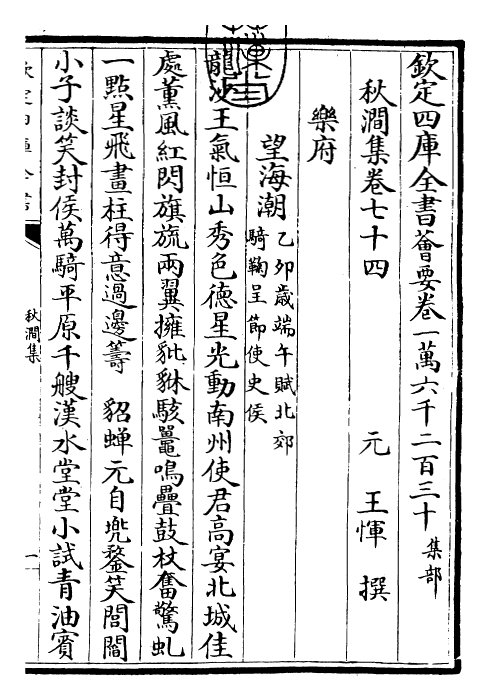 欽定四庫全書薈要卷一萬六千二百三十 集部
秋澗集卷七十四
元 王惲 撰
樂府
望海潮 乙夘歲端午賦北郊
騎鞠呈節使史侯
龍沙王氣恒山秀色德星光動南州使君高宴北城佳
處薰風紅閃旗旒兩翼擁貔貅駭鼉鳴疊鼓杖奮驚虬
一㸃星飛畫柱得意過邊籌 貂蟬元自兜鍪笑閭閻
小子談笑封侯萬騎平原千艘漢水堂堂小試青油賓
秋澗集
一